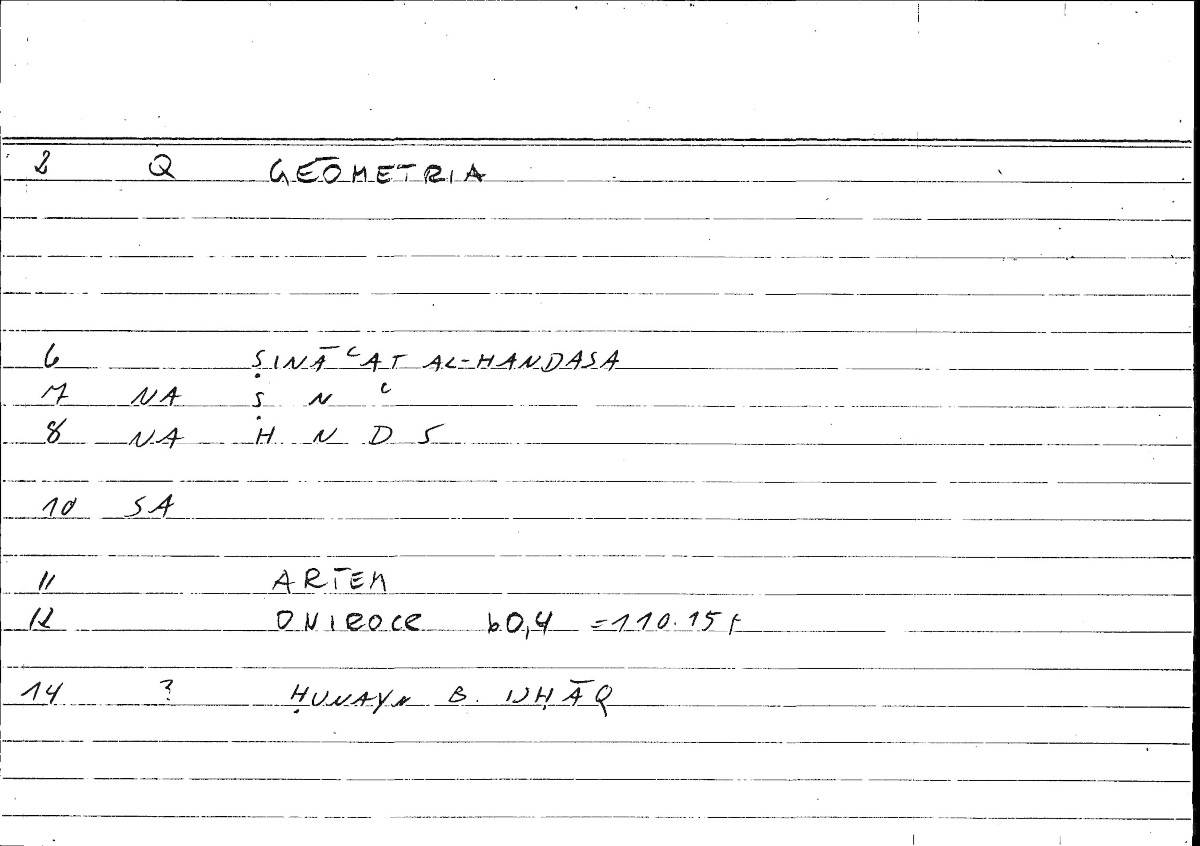 2 Q GEŌMETRIA
6 ṢINĀʿAT AL-HANDASA
7 NA Ṣ N ʿ
8 NA H N D S
10 SA
11 ARTEM
12 ONIROCR 60,4 =110.15 f
14 ? ḤUNAYN B. ISḤĀQ